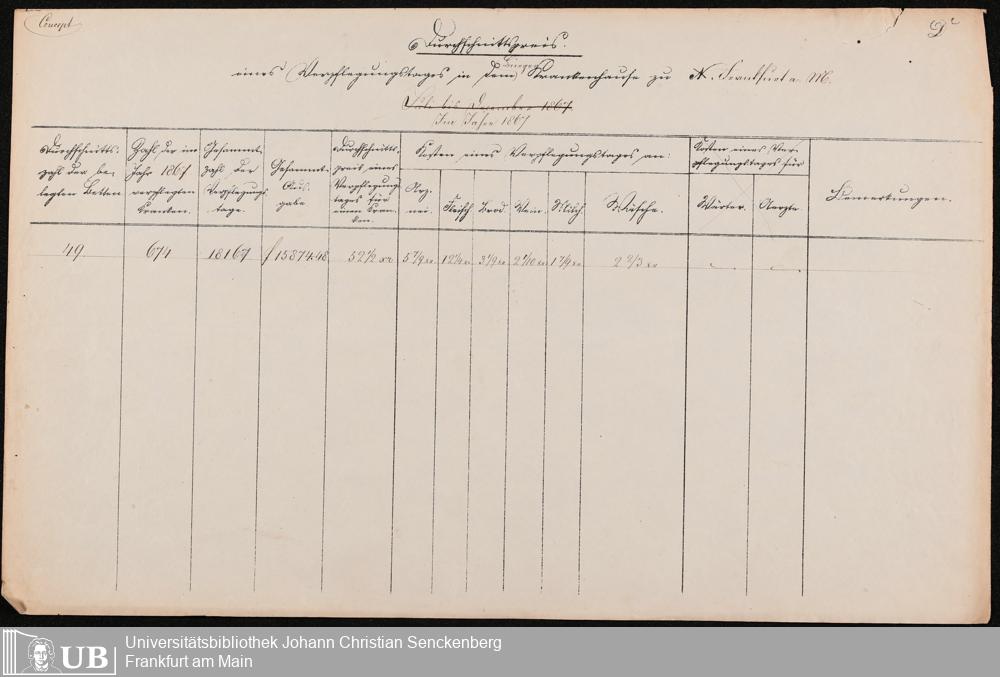 Concept
D
Durchschnittspreis.
eines Verpflegungstages in dem Bürger Krankenhause zu N. Frankfurt a. M.
Juli bis December 1867
Im Jahre 1867
Durchschnitts-
zahl der be-
legten Betten
Zahl der im
Jahr 1867
verpflegten
Kranken.
Gesammt-
zahl der
Verpflegungs
tage.
Gesammt-
Aus-
gabe
Durchschnitts-
preis eines
Verpflegungs-
tages für
einen Kran-
ken.
Kosten eines Verpflegungstages an:
Arz-
nei.
Fleisch
Brod.
Wein.
Milch
Wäsche.
Kosten eines Ver-
pflegungstages für
Wärter.
Aerzte
Bemerkungen.
49.
674
18167
f 15874.48
52 1/2 xr
2 2/3 xr
Universitätsbibliothek Johann Christian Senckenberg
Frankfurt am Main
UB